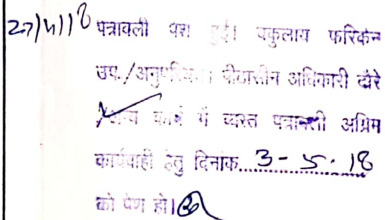 27/4/18 पत्रावली पेश हुई। वकुलाय फरिकेन
उप./अनुपस्थित। पीठासीन अधिकारी दौरे
/अन्य कार्य में व्यस्त पत्रावली अग्रिम
कार्यवाही हेतु दिनांक 3-5-18
को पेश हो।